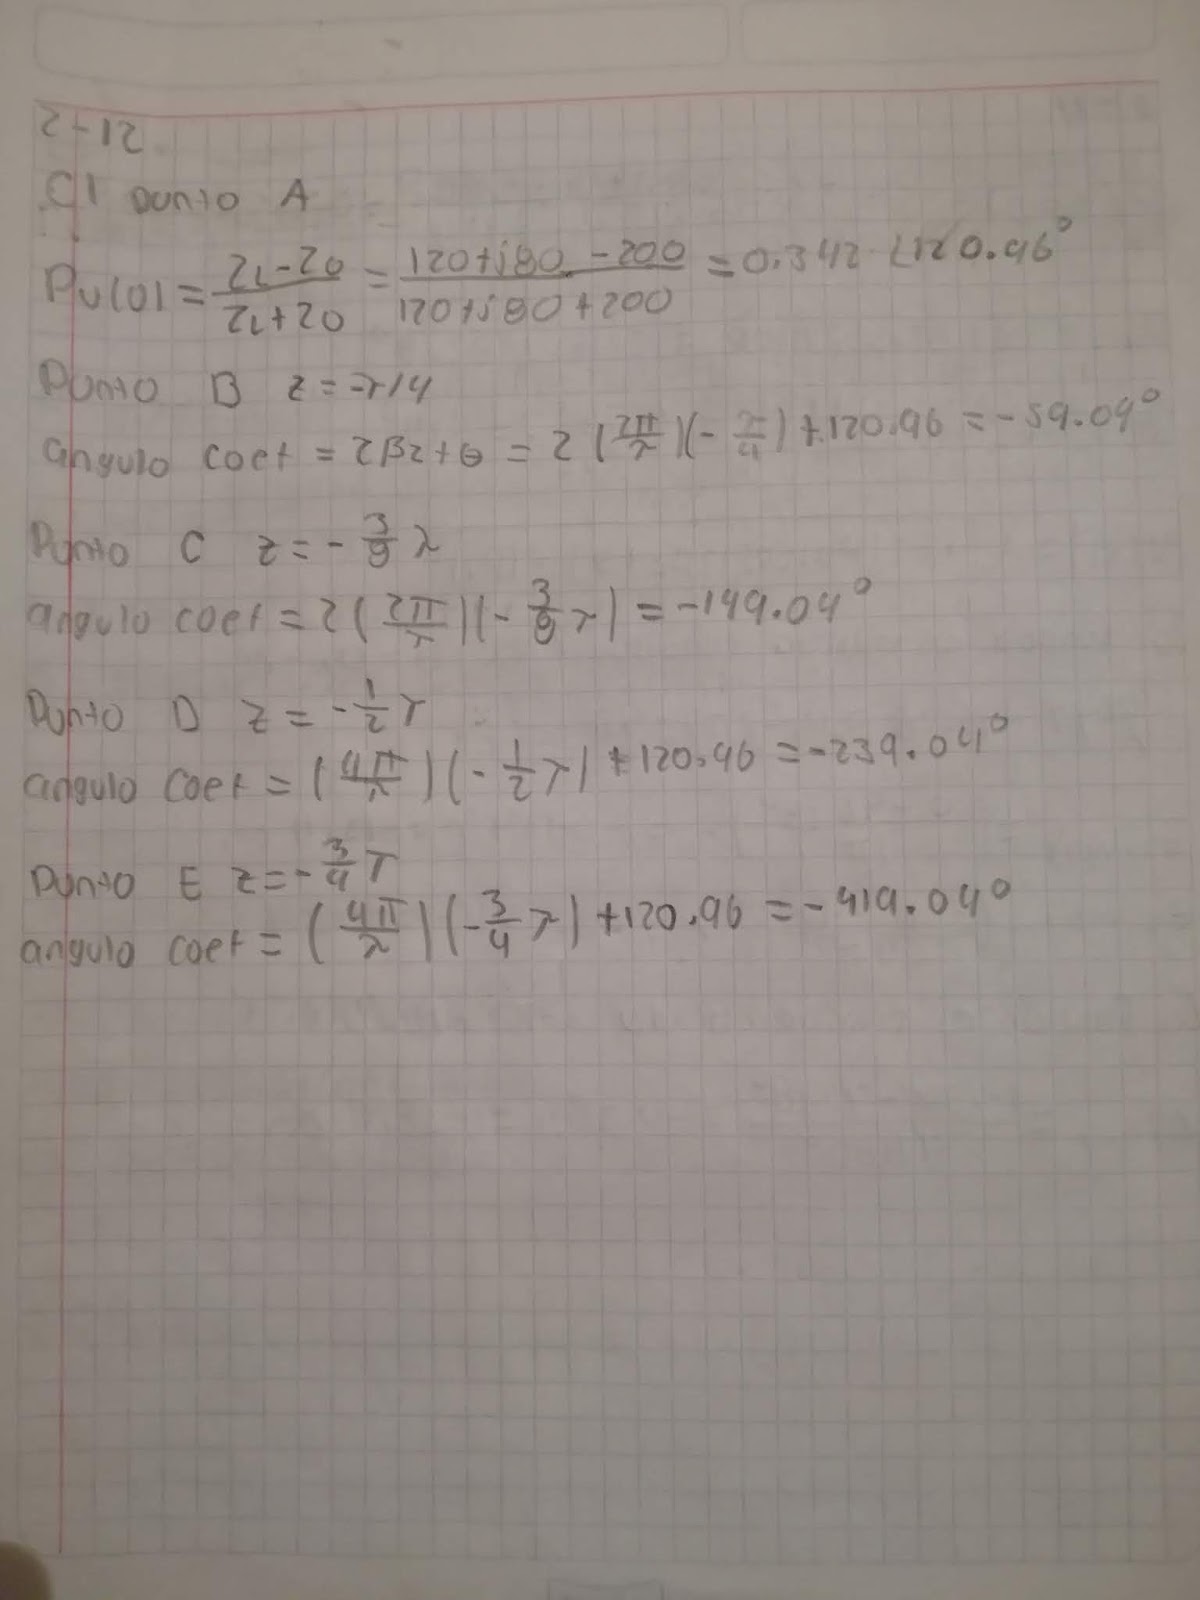 2-12
C) punto A
ρv(0) = (ZL-Z0)/(ZL+Z0) = (120+j80-200)/(120+j80+200) = 0.342 ∠120.96°
Punto B z=-λ/4
angulo coef = 2βz+θ = 2(2π/λ)(-λ/4)+120.96 = -59.04°
Punto C z=-3/8 λ
angulo coef = 2(2π/λ)(-3/8 λ) = -149.04°
Punto D z = -1/2 λ
angulo coef = (4π/λ)(-1/2 λ)+120.96 = -239.04°
Punto E z=-3/4 λ
angulo coef = (4π/λ)(-3/4 λ)+120.96 = -419.04°